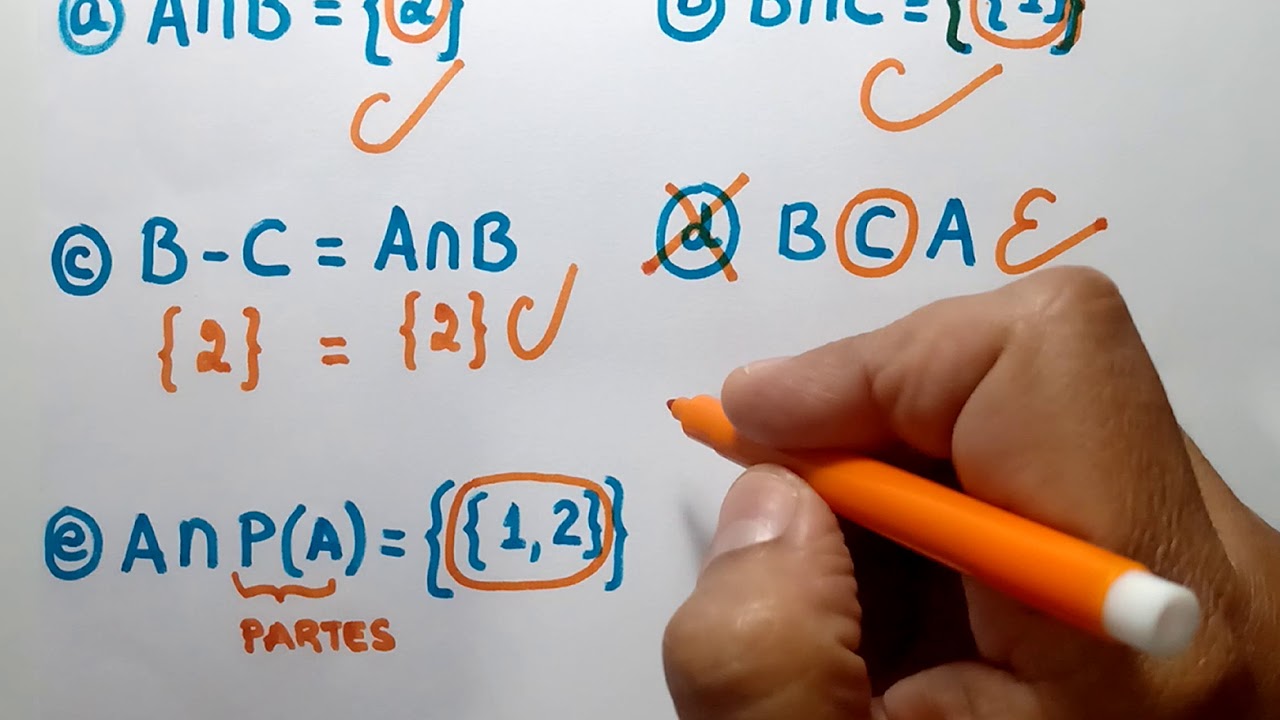 ⓐ A∩B = {2}
ⓑ B∩C = {{1}}
ⓒ B - C = A∩B
{2} = {2}
ⓓ B ⊂ A
ⓔ A∩P(A) = {{1,2}}
PARTES